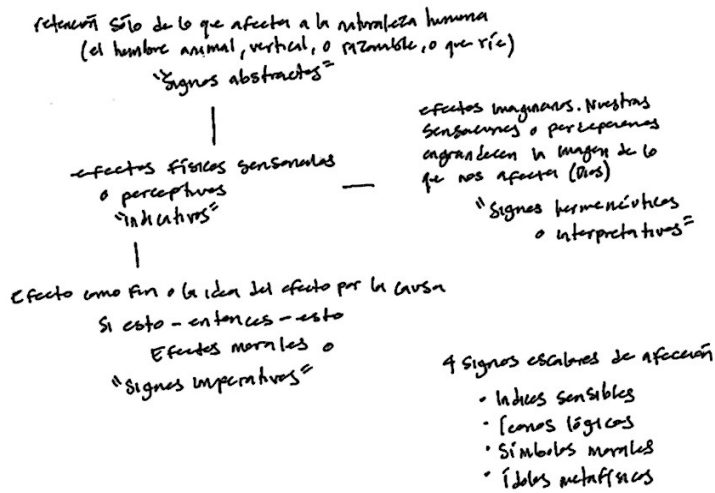 retención sólo de lo que afecta a la naturaleza humana
(el hombre animal, vertical, o razonable, o que ríe)
"Signos abstractos"
efectos físicos sensoriales
o perceptivos
"indicativos"
efectos imaginarios. Nuestras
sensaciones o percepciones
engrandecen la imagen de lo
que nos afecta (Dios)
"Signos hermenéuticos
o interpretativos"
Efecto como fin o la idea del efecto por la causa
Si esto - entonces - esto
Efectos morales o
"Signos imperativos"
4 signos escalares de afección
· Indices sensibles
· Iconos lógicos
· Símbolos morales
· Ídolos metafísicos